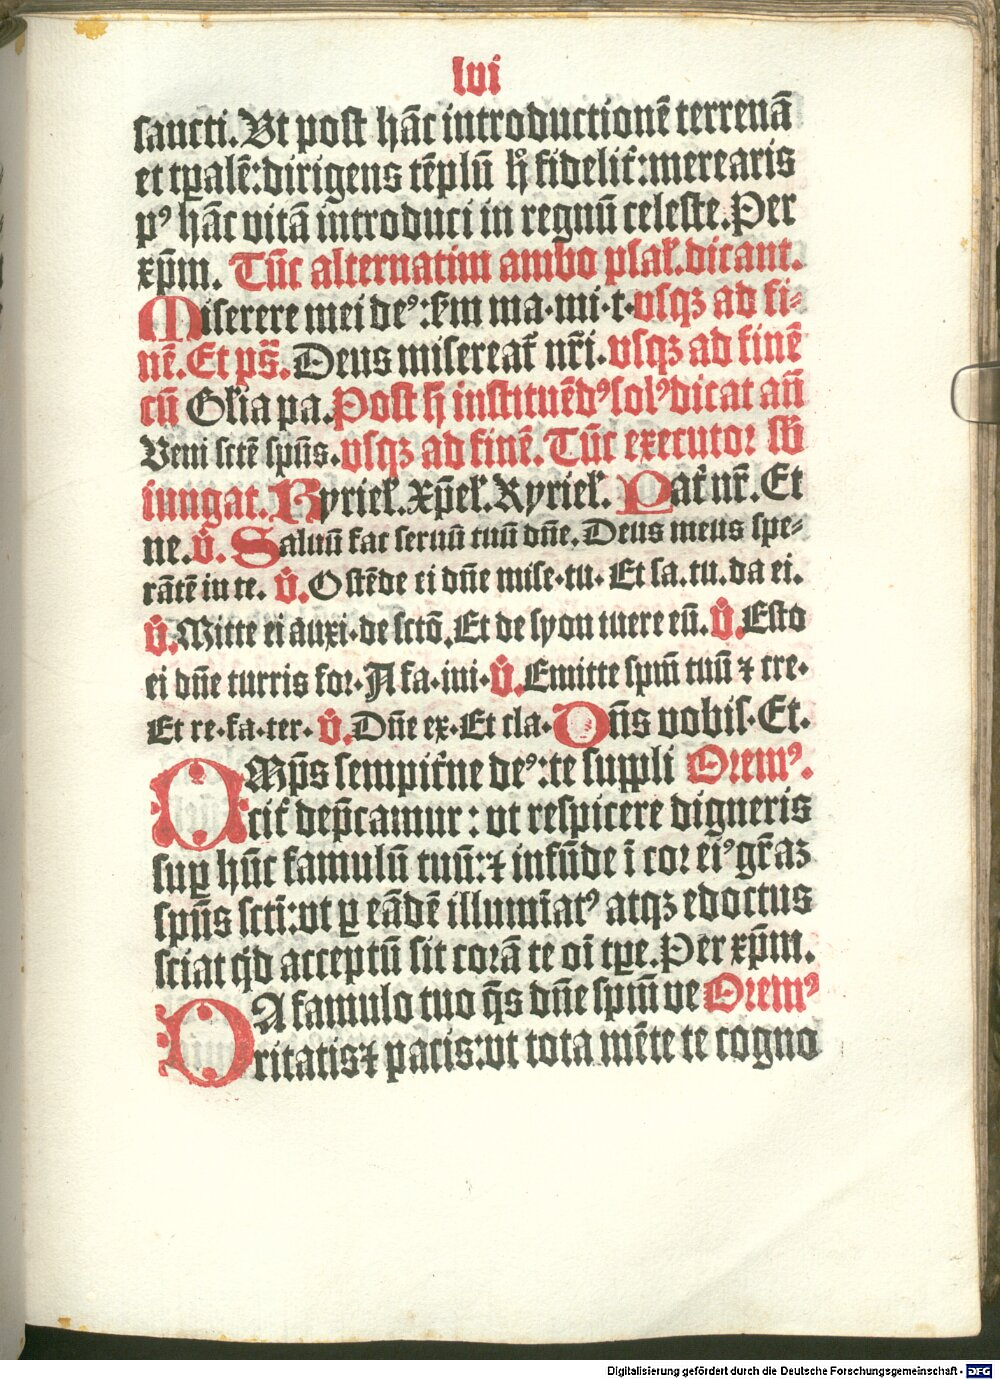 lvi
sancti. Ut post hāc introductionē terrenā
et tꝑalē: dirigens tēplū hͦ fidelit᷑: merearis
pꝰ hāc vitā introduci in regnū celeste. Per
xp̄m. Tūc alternatim ambo psal̄. dicant.
Miserere mei deꝰ: sm̄ ma·mi·t· vsqꝫ ad fi⸗
nē. Et ps̄. Deus misereat᷑ nr̄i. vsqꝫ ad finē
cū Gl̄ia pa. Post h̄ instituēdꝰ solꝰ dicat an̄
Veni sctē spūs. vsqꝫ ad finē. Tūc executor sb̄
iungat. Kyriel̄. Xp̄el̄. Kyriel̄. Pat᷑ nr̄. Et
ne. v̄. Saluū fac seruū tuū dn̄e. Deus meus spe⸗
rātē in te. v̄. Ostēde ei dn̄e mise·tu· Et sa.tu.da ei.
v̄. Mitte ei auxi·de sctō. Et de syon tuere eū. v̄. Esto
ei dn̄e turris for· A fa·ini· v̄. Emitte spm̄ tuū ⁊ cre·
Et re·fa·ter· v̄. Dn̄e ex· Et cla· Dn̄s vobis· Et.
OMp̄s sempit᷑ne deꝰ: te suppli Oremꝰ.
cit᷑ dep̄camur: vt respicere digneris
suꝑ hūc famulū tuū: ⁊ infūde ī cor eiꝰ gr̄aꝫ
spūs scti᷑: vt ꝑ eādē illumīatꝰ atqꝫ edoctus
sciat qd̄ acceptū sit corā te oī tꝑe. Per xp̄m.
DA famulo tuo q̄s dn̄e spm̄ ve Oremꝰ
ritatis ⁊ pacis: vt tota mēte te cogno
Digitalisierung gefördert durch die Deutsche Forschungsgemeinschaft - DFG